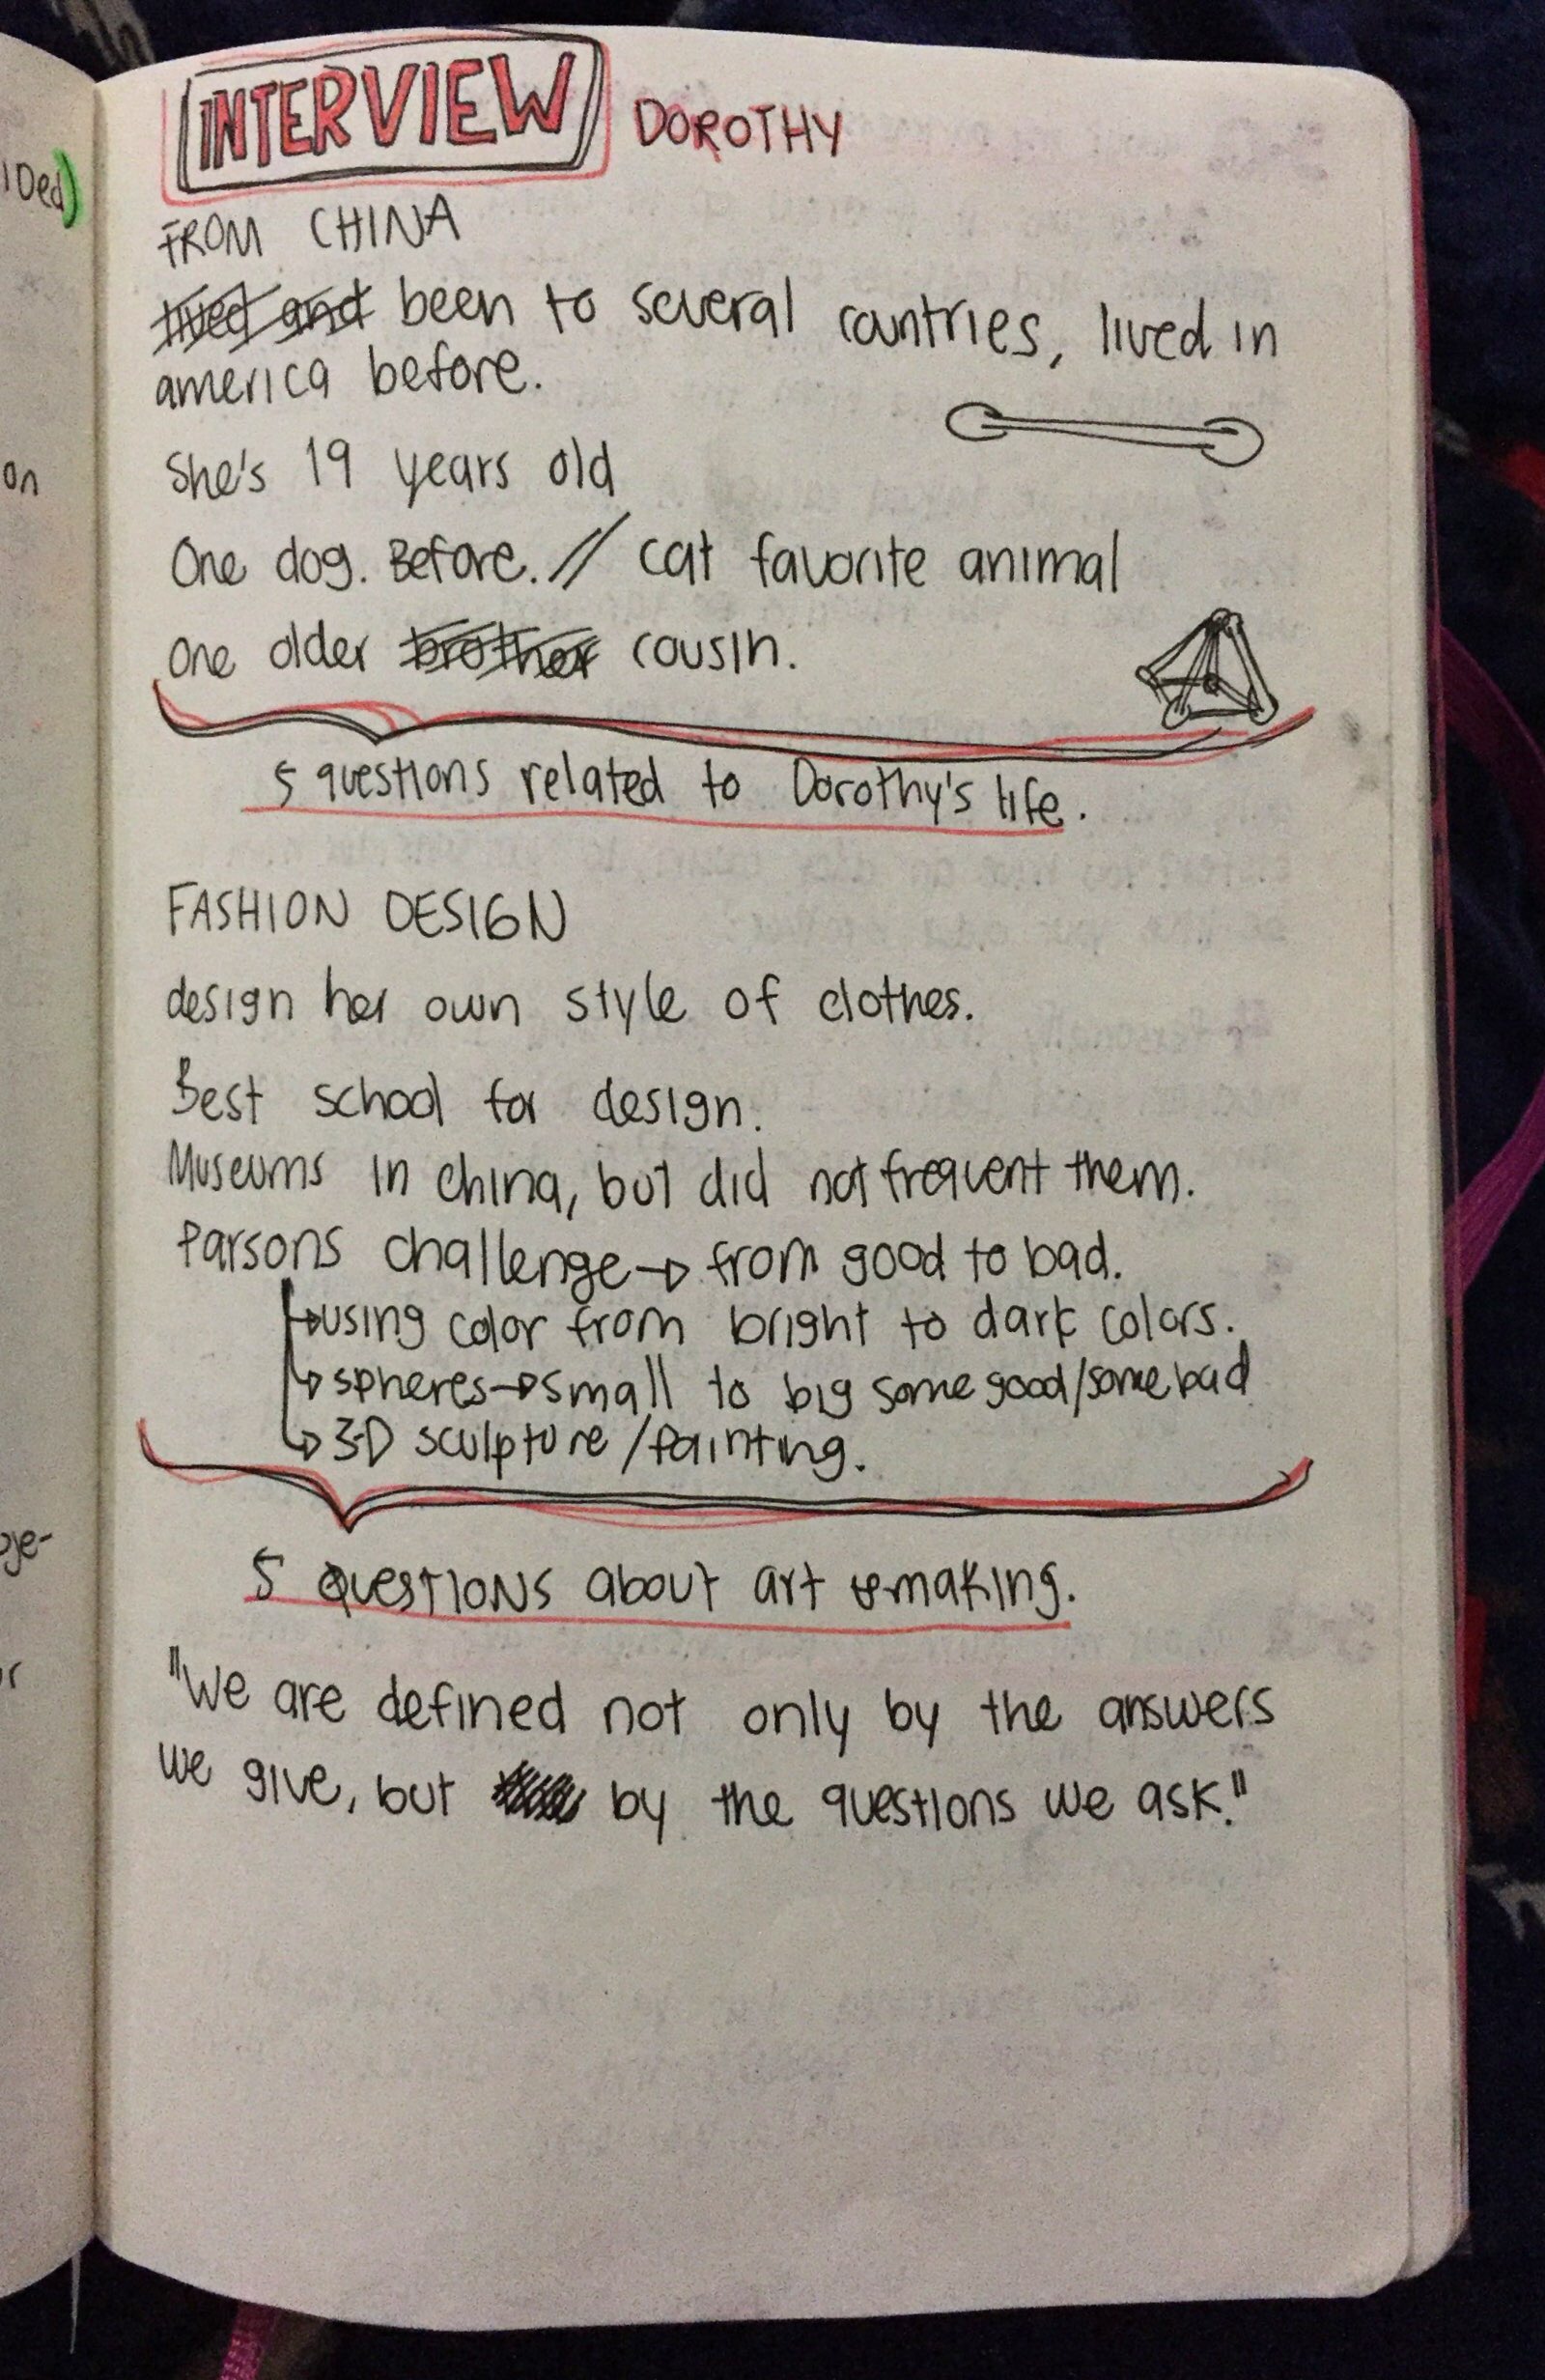 INTERVIEW DOROTHY
FROM CHINA
lived and been to several countries, lived in
america before.
She's 19 years old
One dog. Before. // cat favorite animal
One older brother cousin.
5 questions related to Dorothy's life.
FASHION DESIGN
design her own style of clothes.
Best school for design.
Museums in china, but did not frequent them.
Parsons challenge → from good to bad.
↳ using color from bright to dark colors.
↳ spheres → small to big some good/some bad
↳ 3-D sculpture/painting.
5 QUESTIONS about art making.
"We are defined not only by the answers
we give, but by the questions we ask."